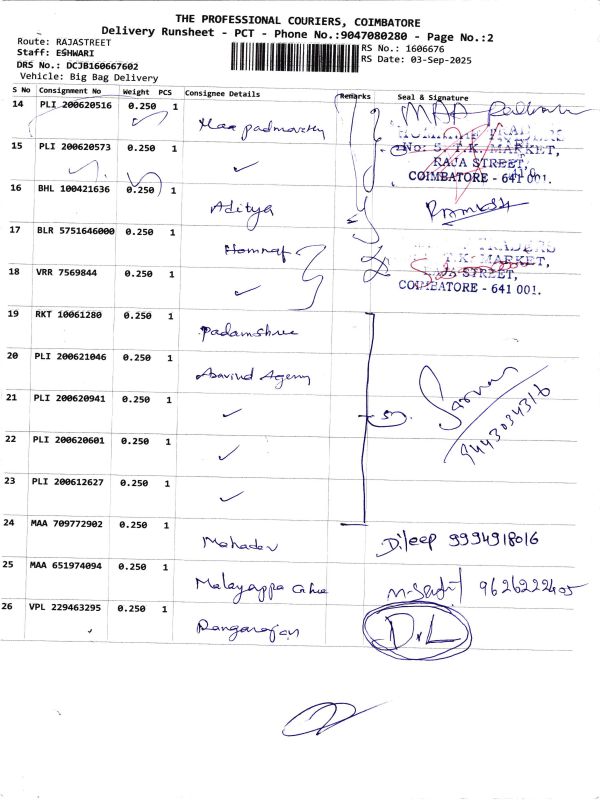 THE PROFESSIONAL COURIERS, COIMBATORE
Delivery Runsheet - PCT - Phone No.:9047080280 - Page No.:2
Route: RAJASTREET
RS No.: 1606676
Staff: ESHWARI
RS Date: 03-Sep-2025
DRS No.: DCJB160667602
Vehicle: Big Bag Delivery
S No Consignment No Weight PCS Consignee Details Remarks Seal & Signature
14 PLI 200620516 0.250 1 Maa padmavathy MAA
15 PLI 200620573 0.250 1 ✓
No: 5, T.K. MARKET,
RAJA STREET,
COIMBATORE - 641 001.
16 BHL 100421636 0.250 1 Aditya
17 BLR 5751646000 0.250 1
TRADERS
T.K. MARKET,
18 VRR 7569844 0.250 1 ✓
RAJA STREET,
COIMBATORE - 641 001.
19 RKT 10061280 0.250 1 padamshree
20 PLI 200621046 0.250 1 Aravind Agency
21 PLI 200620941 0.250 1 ✓
5
9443034316
22 PLI 200620601 0.250 1 ✓
23 PLI 200612627 0.250 1 ✓
24 MAA 709772902 0.250 1 Mahadev Dileep 9994918016
25 MAA 651974094 0.250 1 Malayappa 9626222405
26 VPL 229463295 0.250 1 Rangarajan D.L